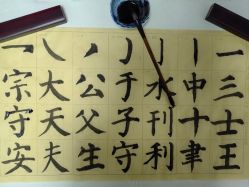 一三士王
丨中十聿
亅水刊利
亅于子守
丿公父生
㇏大天夫
乛宗守安